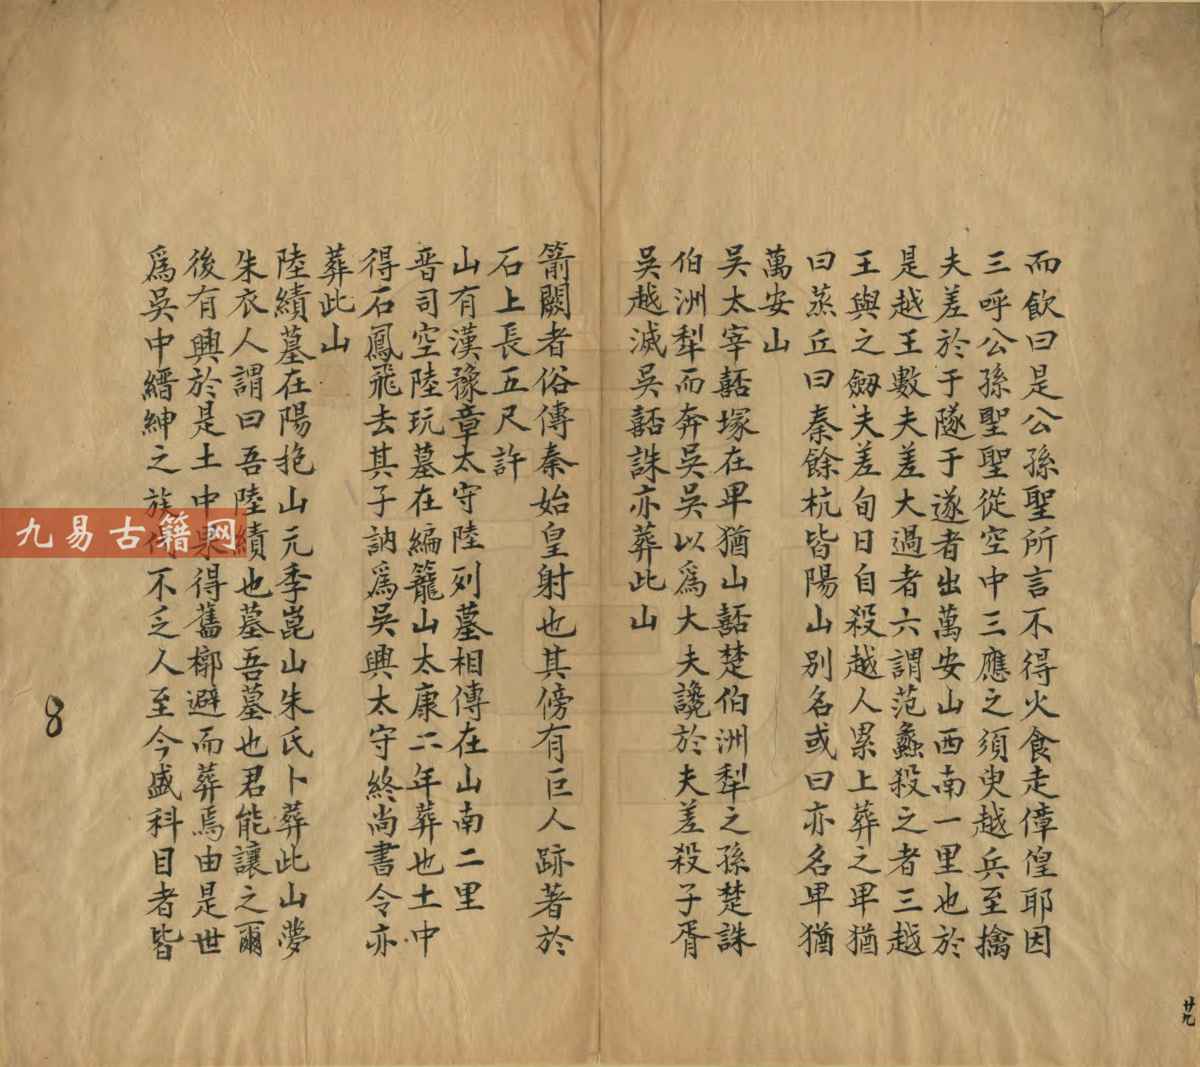 而飲曰是公孫聖所言不得火食走偉偟耶因
三呼公孫聖聖從空中三應之須臾越兵至擒
夫差於于隧于遂者出萬安山西南一里也於
是越王數夫差大過者六謂范蠡殺之者三越
王與之劒夫差旬日自殺越人累上葬之卑猶
曰蒸丘曰秦餘杭皆陽山別名或曰亦名卑猶
萬安山
吳太宰嚭塚在卑猶山嚭楚伯洲犁之孫楚誅
伯洲犁而奔吳吳以爲大夫讒於夫差殺子胥
吳越滅吳嚭誅亦葬此山
箭闕者俗傳秦始皇射也其傍有巨人跡著於
石上長五尺許
山有漢豫章太守陸列墓相傳在山南二里
晋司空陸玩墓在編籠山太康二年葬也土中
得石鳳飛去其子訥爲吳興太守終尚書令亦
葬此山
陸績墓在陽抱山元季崑山朱氏卜葬此山夢
朱衣人謂曰吾陸績也墓吾墓也君能讓之爾
後有興於是土中果得舊槨避而葬焉由是世
爲吳中縉紳之族 不乏人至今盛科目者皆
8
廿九
九易古籍网